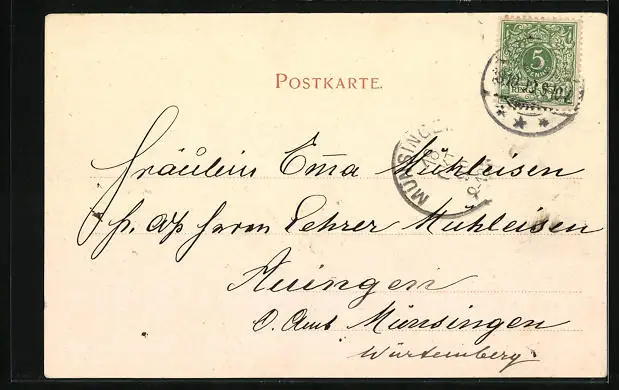 POSTKARTE.
5
MÜNSINGEN
Fräulein Emma Mühleisen
p. Adr Herrn Lehrer Mühleisen
Auingen
O. Amt Münsingen
Württemberg.